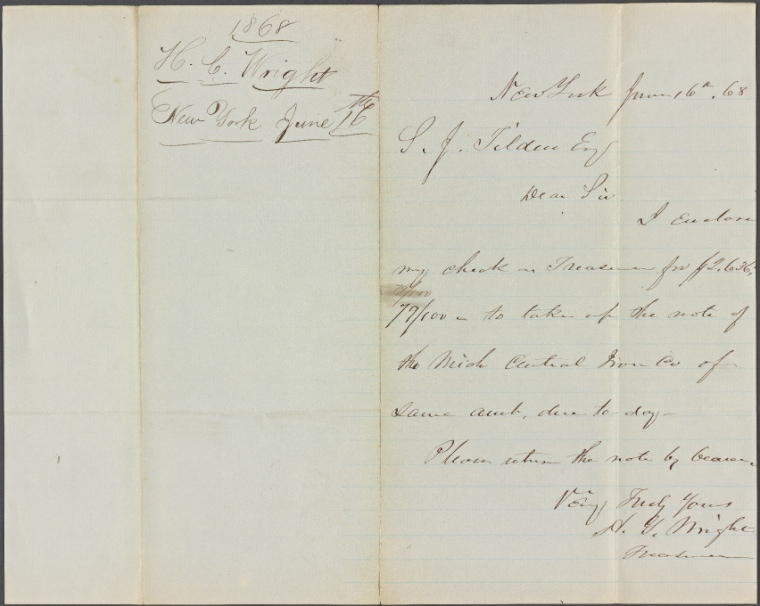 1868
H. C. Wright
New York June 16th
New York June 16th. 68
S. J. Tilden Esq
Dear Sir
I enclose
my check as Treasurer for $2,636.
79/100 – to take up the note of
the Mich Central Iron Co of
same amt, due to-day –
Please return the note by bearer
Very Truly Yours
H. Wright
Treasurer